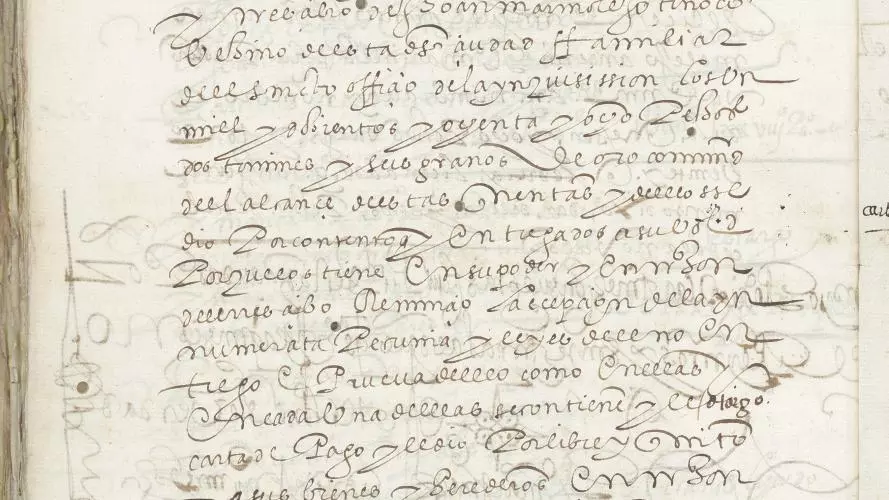 y rresçibio del Joan marmolejo tinoco
Vezino de esta dha çiudad ffamiliar
dell sancto offiçio de la ynquisission los Un
mill y dozientos y ochenta y ocho Pessos
dos tomines y seis granos de oro comund
del alcançe de estas Cuentas y dellos se
dio Por contento y Entregado a su Voluntad
Por que los tiene En su poder y En rrazon
del rresçibo Renunçio la exepçion de la yn
numerata Pecunia y leyes del leno En
trego E Prueva dello como En ellas y
En cada Una dellas se contiene y le otorgo
carta de Pago y le dio Por libre y quito
a sus bienes y herederos En rrazon